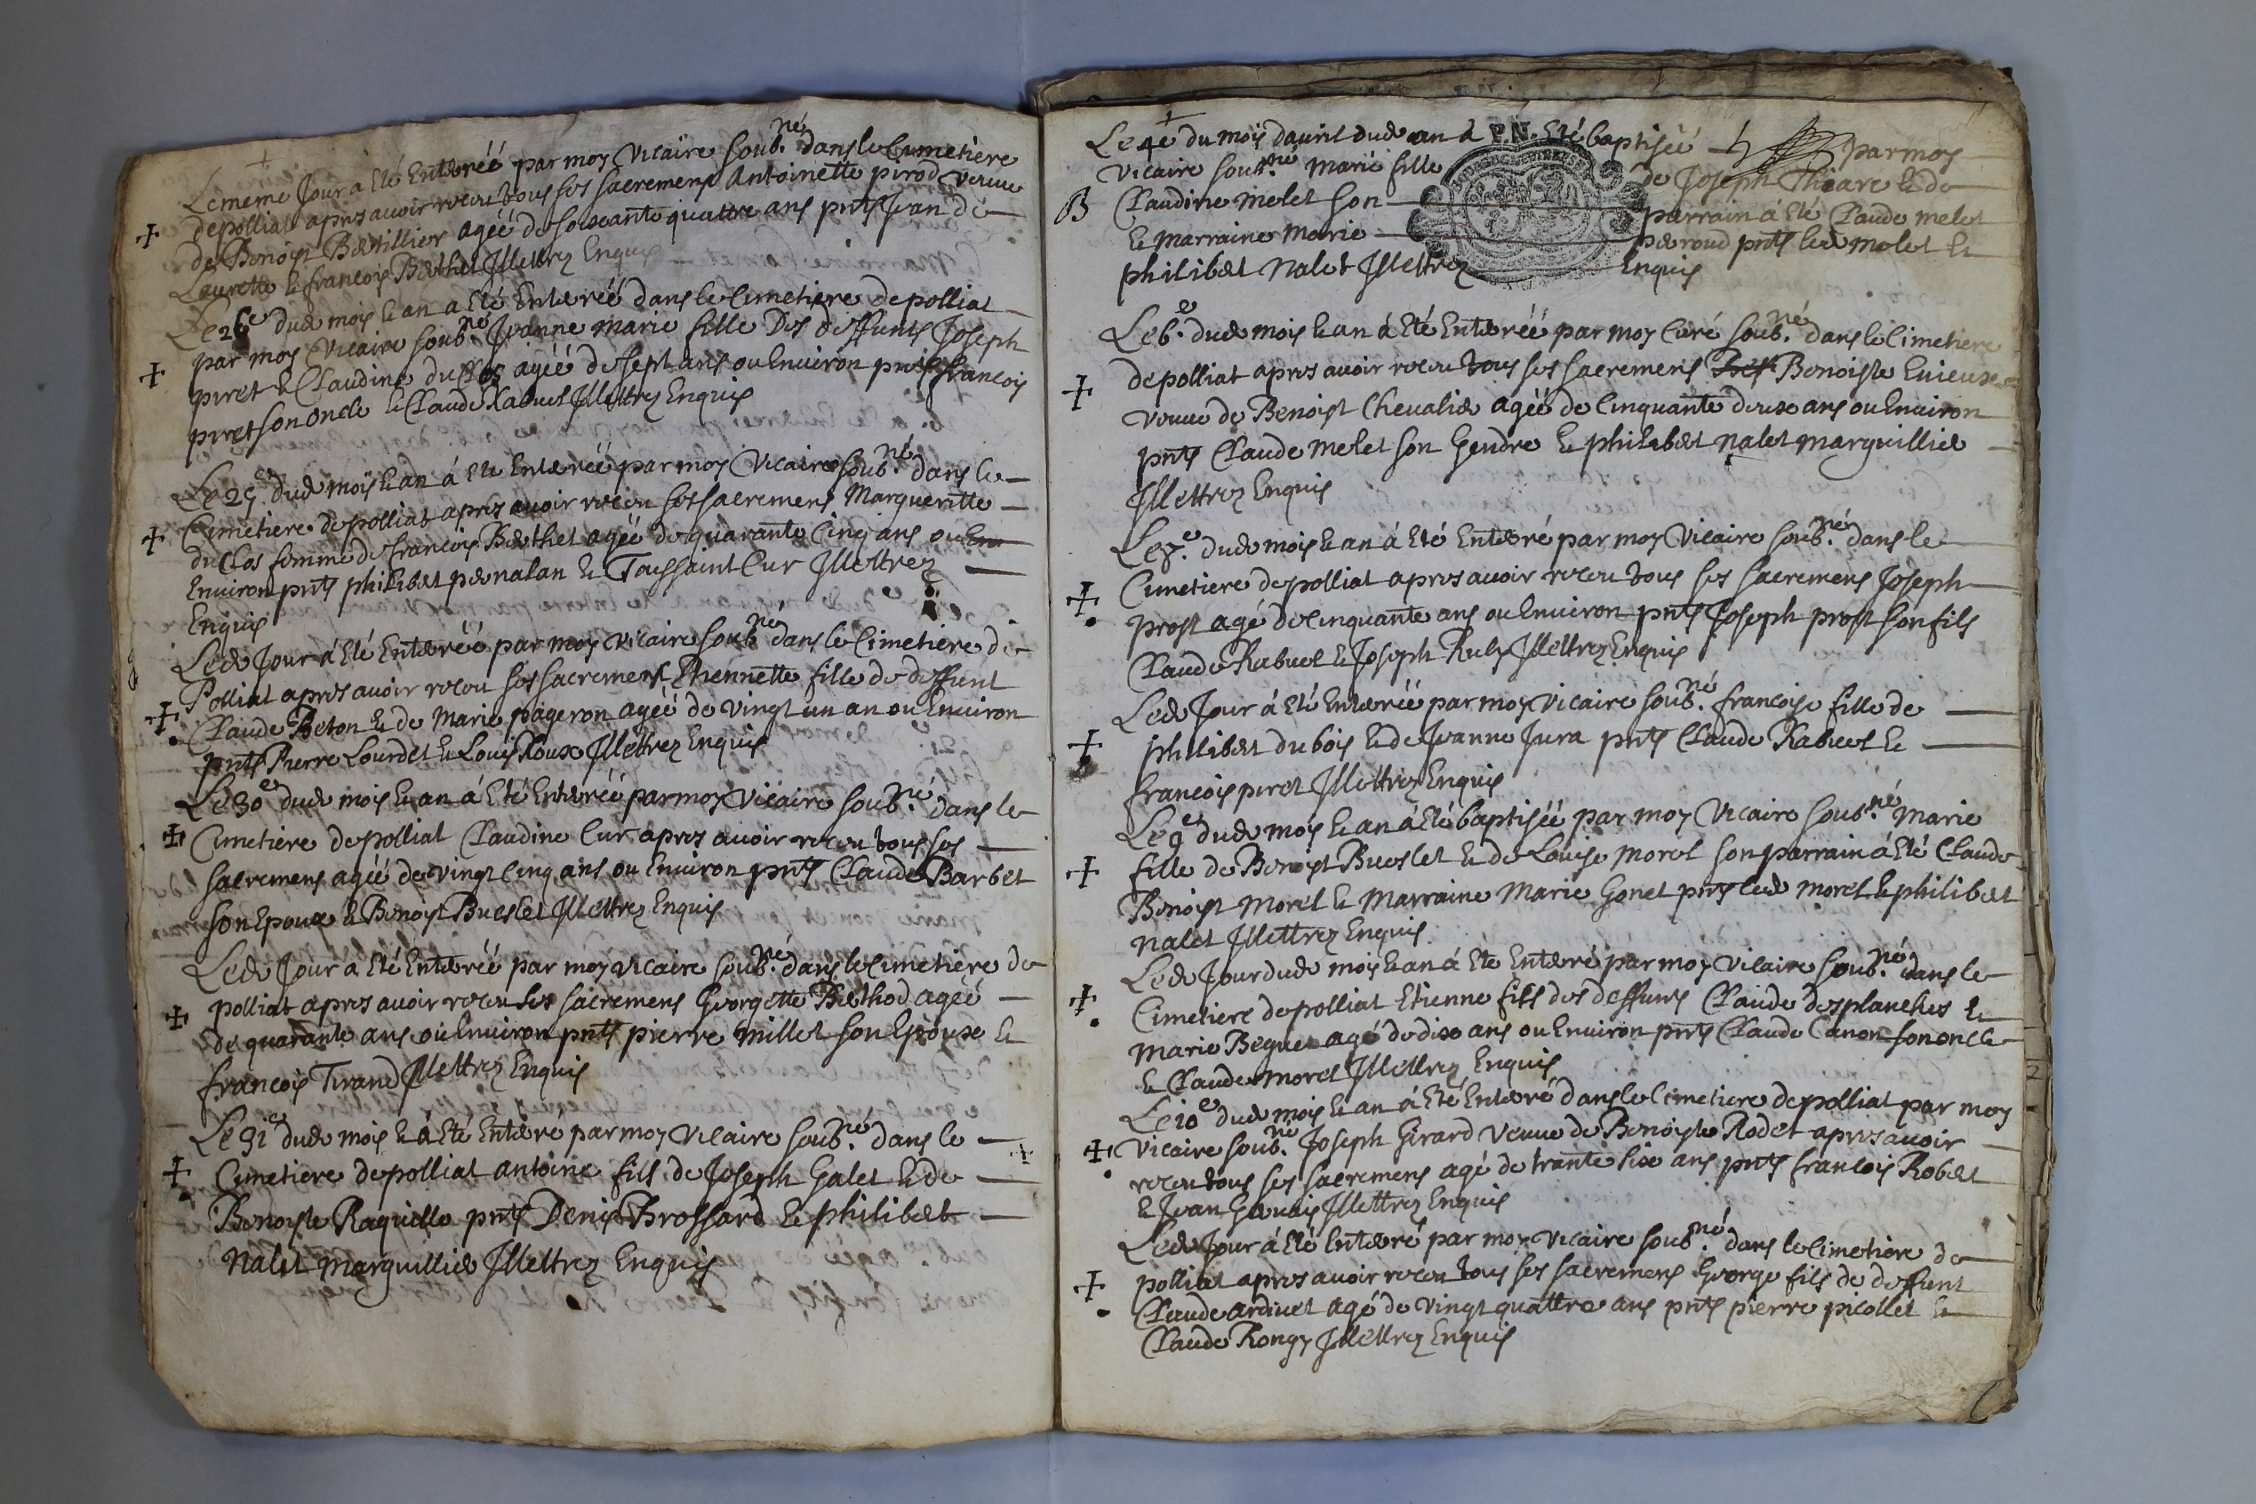 Le meme Jour a Eté Enterréé par moy vicaire soub.né dans le Cimetiere
de polliat apres avoir receu tous ses sacremens Antoinette pirod veuve
de Benoist Bertillier agéé de soixante quattre ans pnts Jean de
Laurette & francois Berthet Illettrez Enquis
Le 26e dud mois & an a Eté Enterréé dans le Cimetiere de polliat
par moy vicaire soub.né Jeanne marie fille Des deffunts Joseph
piret & Claudine duclos agéé de sept ans ou Environ pnts francois
piret son oncle & Claude Rabuel Illettrez Enquis
Le 29e dud mois & an á Eté Enterréé par moy Vicaire soub.né dans le
Cimetiere de polliat apres avoir receu ses sacremens Margueritte
duclos femme de francois Berthet agéé de quarante Cinq ans ou
Environ pnts philibert pernalan & Toussaint Cur Illettrez
Enquis
Led Jour á Eté Enterréé par moy vicaire soub.né dans le Cimetiere de
Polliat apres avoir receu ses sacremens Thiennette fille de deffunt
Claude Beton & de Marie pageron agéé de vingt un an ou Environ
pnts Pierre Lourdet & Louis Roux Illettrez Enquis
Le 30e dud mois & an á Eté Enterréé par moy Vicaire soub.né dans le
Cimetiere de polliat Claudine Cur apres avoir receu tous ses
sacremens agéé de vingt Cinq ans ou Environ pnts Claude Barbet
son Epoux & Benoist Bueslet Illettrez Enquis
Led Jour a Eté Enterréé par moy vicaire soub.né dans le Cimetiere de
polliat apres avoir receu ses sacremens Georgette Berthod agéé
de quarante ans ou Environ pnts pierre millet son Epoux &
francois Tirand Illettrez Enquis
Le 31e dud mois & á Eté Enterre par moy Vicaire soub.né dans le
Cimetiere de polliat antoine fils de Joseph Galet & de
Benoiste Raquille pnts Denis Brossard & philibert
Nalet marguillier Illettrez Enquis
Le 4e du mois davril dud an á P.N. Eté baptiséé par moy
Vicaire soub.né Marie fille de Joseph Thicare & de
B Claudine melet son parrain á Eté Claude melet
& Marraine Marie peroud pnts led melet &
philibert Nalet Illettrez Enquis
Le 6e dud mois & an á Eté Enterréé par moy Curé soub.né dans le Cimetiere
de polliat apres avoir receu tous ses sacremens Benoiste Envieux
veuve de Benoist Chevalier agéé de Cinquante deux ans ou Environ
pnts Claude melet son Gendre & philibert nalet marguillier
Illettrez Enquis
Le 8e dud mois & an á Eté Enterré par moy Vicaire soub.né dans le
Cimetiere de polliat apres avoir receu tous ses sacremens Joseph
prost agé de Cinquante ans ou Environ pnts Joseph prost son fils
Claude Rabuel & Joseph Ruly Illettrez Enquis
Led Jour á Eté Enterréé par moy Vicaire soub.né francoise fille de
philibert du bois & de Jeanne Jura pnts Claude Rabuel &
francois piret Illettrez Enquis
Le 9e dud mois & an á Eté baptiséé par moy Vicaire soub.né Marie
fille de Benoist Bueslet & de Louise morel son parrain á Eté Claude
Benoist Morel & Marraine Marie Gonet pnts led morel & philibert
nalet Illettrez Enquis
Led Jour dud mois & an á Eté Enterré par moy Vicaire soub.né dans le
Cimetiere de polliat Etienne fils des deffunts Claude desplanches &
Marie Beguet agé de dix ans ou Environ pnts Claude Canon son oncle
& Claude morel Illettrez Enquis
Le 10e dud mois & an á Eté Enterré dans le Cimetiere de polliat par moy
Vicaire soub.né Joseph Girard Veuve de Benoiste Rodet apres avoir
receu tous ses sacremens agé de trante six ans pnts francois Robert
& Jean Gervais Illettrez Enquis
Led Jour á Eté Enterré par moy vicaire soub.né dans le Cimetiere de
polliat apres avoir receu tous ses sacremens George fils de deffunt
Claude ardinet agé de vingt quattre ans pnts pierre picollet &
Claude Rongy Illettrez Enquis